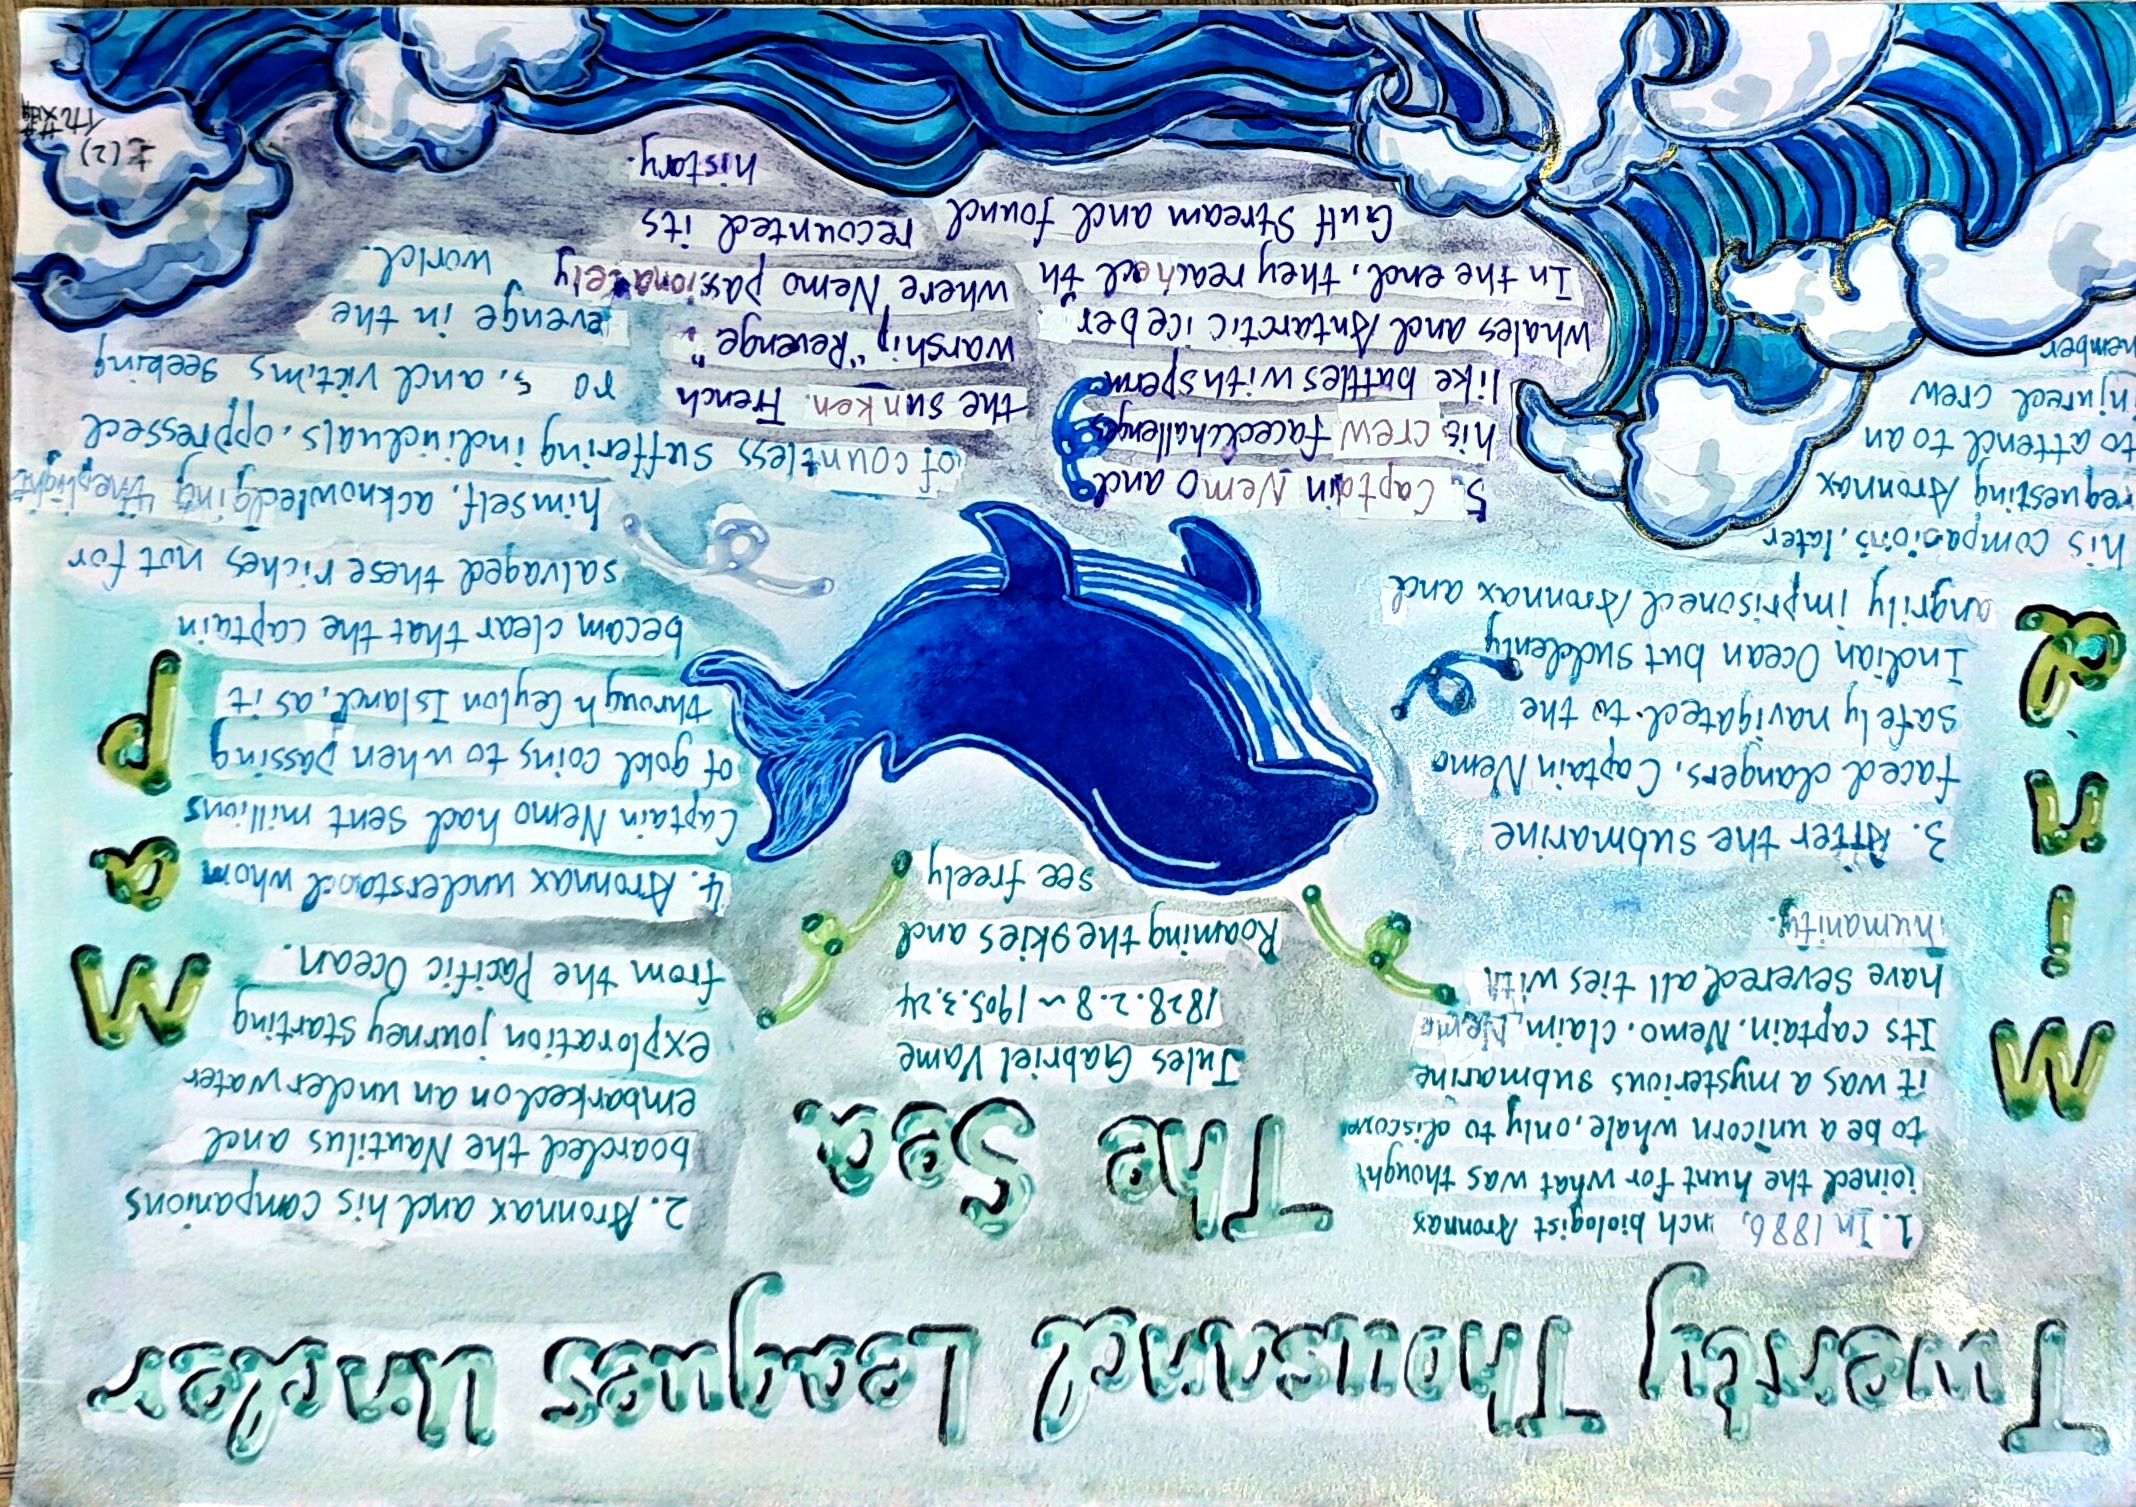 Twenty Thousand Leagues Under
The Sea
Mind
Map
Jules Gabriel Vame
1828.2.8~1905.3.24
Roaming the skies and
see freely
1. In 1886, nch biologist Aronnax
joined the hunt for what was though
to be a unicorn whale, only to discover
it was a mysterious submarine
Its captain. Nemo. claim, Nemo
have severed all ties with
humanity.
2. Aronnax and his companions
boarded the Nautilus and
embarked on an underwater
exploration journey starting
from the Pacific Ocean.
3. After the submarine
faced dangers, Captain Nemo
safely navigated to the
Indian Ocean but suddenly
angrily imprisoned Aronnax and
his companions, later
requesting Aronnax
to attend to an
injured crew
member
4. Aronnax understood whom
Captain Nemo had sent millions
of gold coins to when passing
through Ceylon Island, as it
becam clear that the captain
salvaged these riches not for
himself, acknowledging the plight
of countless suffering individuals, oppressed
ro s, and victims seeking
evenge in the
world.
5. Captain Nemo and
his crew faced challenges
like buttles with sperm
whales and Antarctic iceber,
In the end, they reached th
Gulf Stream and found
the sunken. French
warship "Revenge".
where Nemo passionately
recounted its
history.
七(2)